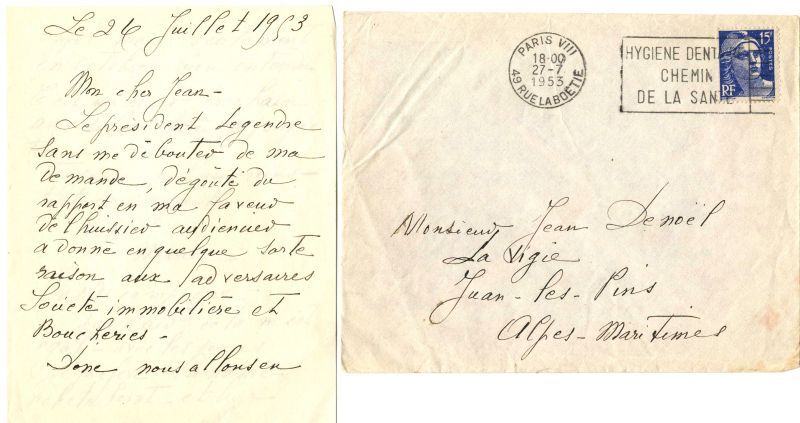 Le 26 Juillet 1953
Mon cher Jean -
Le président Legendre
sans me débouter de ma
demande, dégoûté du
rapport en ma faveur
de l'huissier audiencier
a donné en quelque sorte
raison aux adversaires
Société immobilière et
Boucheries -
Donc nous allons en
PARIS VIII
18-00
27-7
1953
49 RUE LA BOETIE
HYGIENE DENTAIRE
CHEMIN
DE LA SANTE
15F
POSTES
RF
Monsieur Jean Denoël
La Vigie
Juan-les-Pins
Alpes-Maritimes